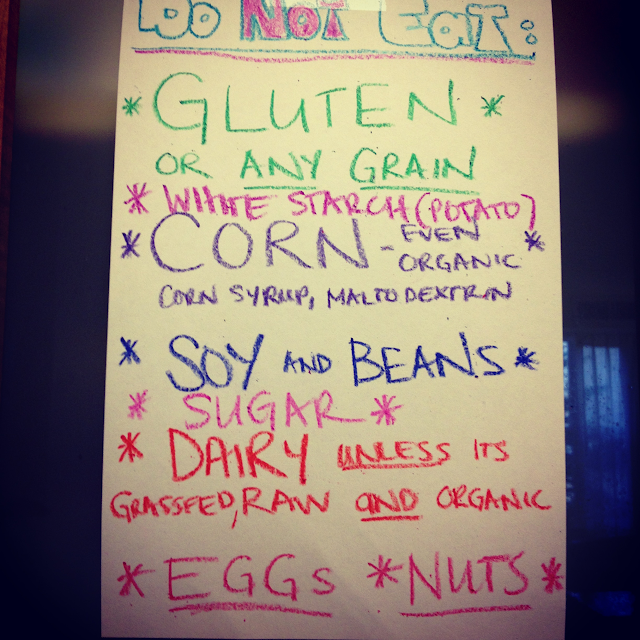 Do NOT EaT:
* GLUTEN *
OR ANY GRAIN
* WHITE STARCH (POTATO)
* CORN - EVEN ORGANIC *
CORN SYRUP, MALTODEXTRIN
* SOY AND BEANS *
* SUGAR *
* DAIRY UNLESS ITS
GRASSFED, RAW AND ORGANIC
* EGGS * NUTS *